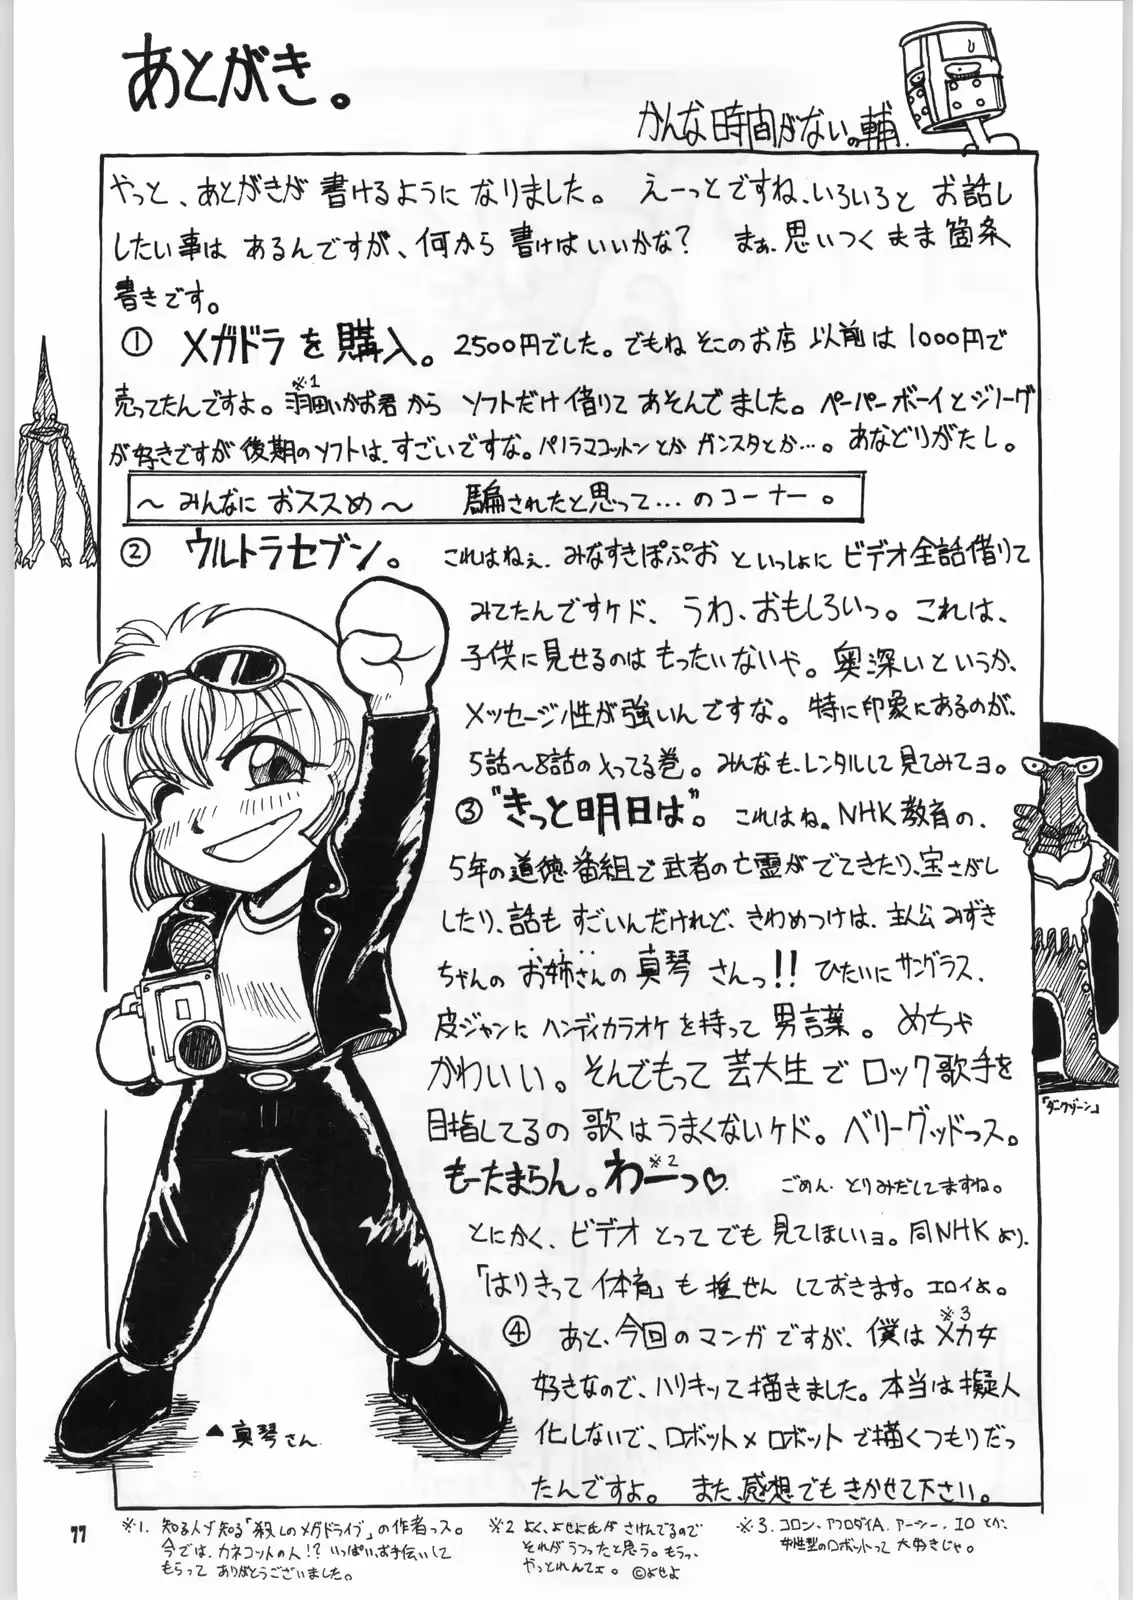 あとがき。
かんな時間がないの輔.
やっと、あとがきが 書けるように なりました。 えーっとですね、いろいろと お話し
したい事は あるんですが、何から 書けばいいかな? まぁ、思いつく まま 箇条
書きです。
① メガドラ を 購入。 2500円でした。でもね そこのお店 以前は 1000円で
売ってたんですよ。羽田いかお君から ソフトだけ借りて あそんでました。ペーパーボーイとジリーグ
※1
が好きですが 後期のソフトは、すごいですな。パノラマコットンとか ガンスタとか…。あなどりがたし。
～みんなに おススめ～ 騙されたと思って…のコーナー。
② ウルトラセブン。 これはねぇ、みなすきぽぷお といっしょに ビデオ全話借りて
みてたんですケド、うわ、おもしろいっ。これは、
子供に見せるのは もったいないや。奥深いというか、
メッセージ性が強いんですな。特に印象にあるのが、
5話～8話の入ってる巻。みんなも、レンタルして見てみてョ。
③ "きっと明日は"。 これはね。NHK教育の、
5年の道徳番組で武者の亡霊がでてきたり、宝さがし
したり、話もすごいんだけれど、きわめつけは、主人公みずき
ちゃんの お姉さんの 真琴 さんっ!! ひたいにサングラス、
皮ジャンに ハンディカラオケを持って 男言葉。めちゃ
かわいい。そんでもって 芸大生で ロック歌手を
目指してるの 歌はうまくないケド。ベリーグッドっス。
もーたまらん。わーっ♡ ※2 ごめん、とりみだしてますね。
とにかく、ビデオとってでも 見てほしいョ。同NHKより、
「はりきって体育」も推せん しておきます。エロイよ。
④ あと、今回のマンガですが、僕はメカ女 ※3
好きなので、ハリキッて描きました。本当は擬人
化しないで、ロボット×ロボットで描くつもりだっ
たんですよ。 また、感想でもきかせて下さい。
「ダークゾーン」
▲真琴さん
77
※1. 知る人ゾ知る「殺しのメガドライブ」の作者っス。
今では、カネコットの人!? いっぱいお手伝いして
もらって ありがとうございました。
※2 よく、よせよ氏が さけんでるので
それがうつったと思う。もうっ、
やっとれんてェ。 ©よせよ
※3. コロン、アフロダイA、アーシー、IOとか、
女性型のロボットって 大好きじゃ。